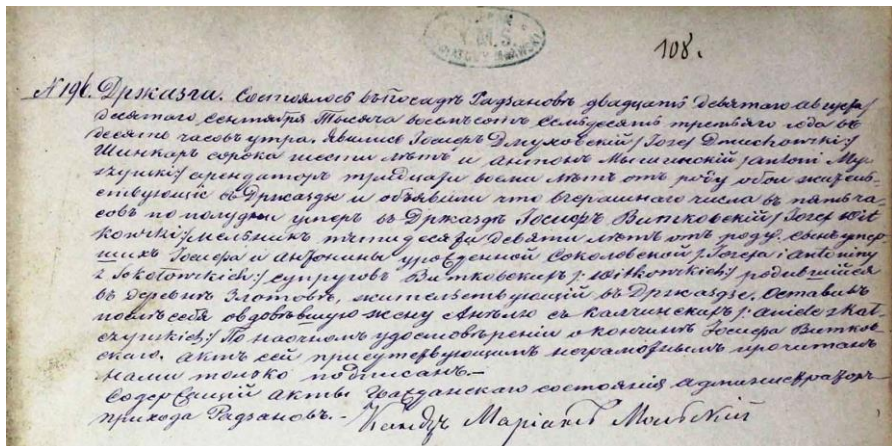 108.
N 196. Држазги. Состоялось въ посадѣ Радзановѣ двадцать девятаго августа/
десятаго сентября тысяча восемьсотъ семьдесятъ третьяго года въ
десять часовъ утра. Явились Іосифъ Дмуховскій /Jozef Dmuchowski:/
Шинкарь сорока шести лѣтъ и антонъ Мышинскій /antoni My-
szynski:/ арендаторъ тридцати восьми лѣтъ отъ роду обои жительс-
ствующіе въ Држаздзе и объявили что вчерашняго числа въ пять ча-
совъ по полудни умеръ въ Држаздзе Іосифъ Витковскій /Jozef Wit
kowski:/ мельникъ пятидесяти девяти лѣтъ отъ роду. сынъ умер-
шихъ Іосифа и антонины урожденной Соколовской /:Jozefa i antoniny
z Sokołowskich:/ супруговъ Витковскихъ /:Witkowskich:/ родившійся
въ деревнѣ Злотовѣ, жительствующій въ Држаздзе. Оставивъ
послѣ себя овдовѣвшую жену Анѣлю съ калчинскихъ /:aniele z Kal-
czynskich:/ По наочномъ удостовѣреніи о кончинѣ Іосифа Витков-
скаго. актъ сей присутствующимъ неграмотнымъ прочитанъ
нами только подписанъ.—
Содержащій акты гражданскаго состоянія администраторъ
прихода Радзановъ.— Ксендзъ Маріанъ